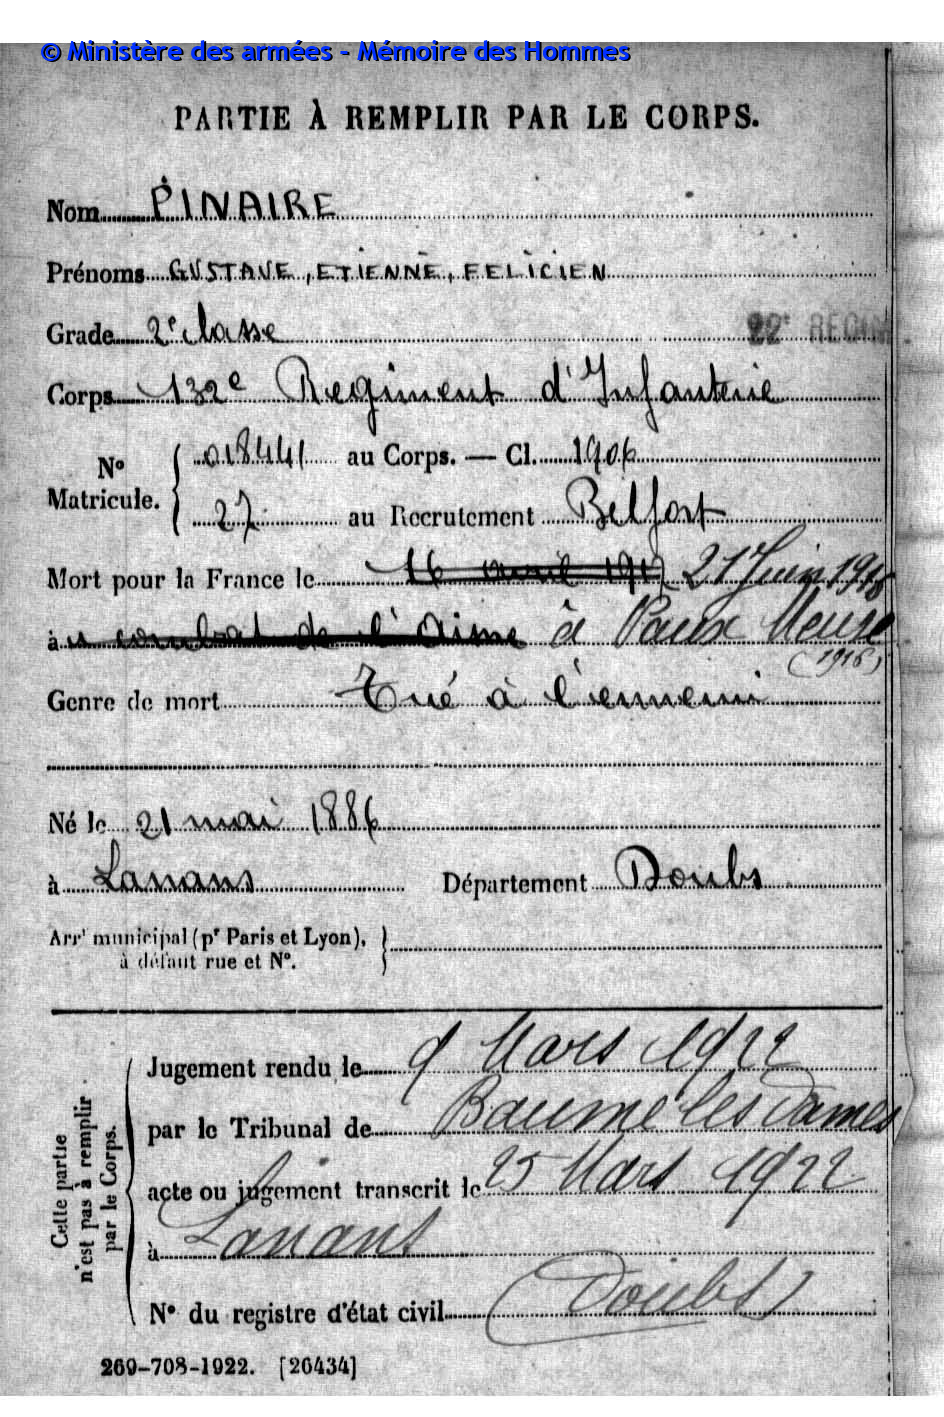 © Ministère des armées - Mémoire des Hommes
PARTIE À REMPLIR PAR LE CORPS.
Nom PINAIRE
Prénoms GUSTAVE, ETIENNE, FELICIEN
Grade 2e classe
22e REGIM
Corps 132e Regiment d'Infanterie
No Matricule. { 018441 au Corps. — Cl. 1906
27 au Recrutement Belfort
Mort pour la France le 16 avril 1917 21 Juin 1916
à u combat de l'Aisne à Vaux Meuse
(1916)
Genre de mort Tué à l'ennemi
Né le 21 mai 1886
à Lanans Département Doubs
Arrt municipal (pr Paris et Lyon), }
à défaut rue et No.
Cette partie n'est pas à remplir par le Corps.
Jugement rendu le 9 Mars 1922
par le Tribunal de Baume les Dames
acte ou jugement transcrit le 25 Mars 1922
à Lanans
No du registre d'état civil (Doubs)
269-708-1922. [26434]